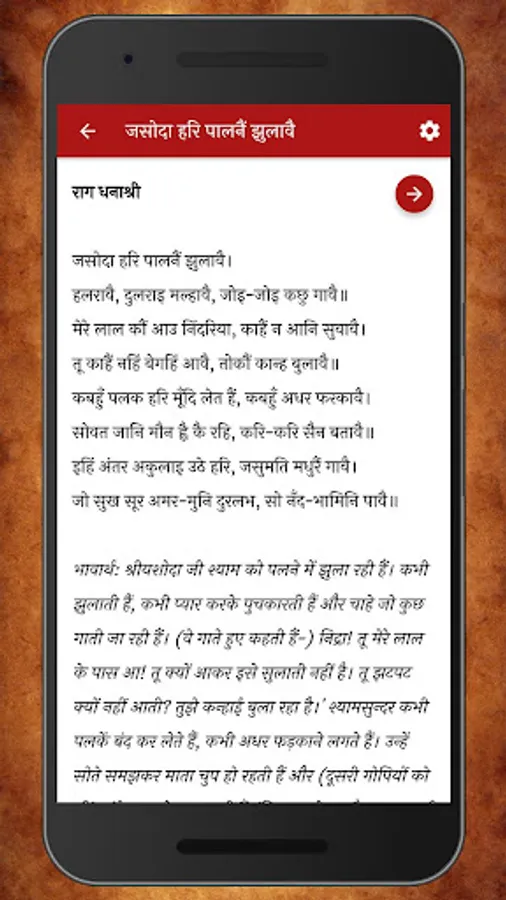 जसोदा हरि पालनैं झुलावै
राग धनाश्री
जसोदा हरि पालनैं झुलावै।
हलरावै, दुलराइ मल्हावै, जोइ-जोइ कछु गावै॥
मेरे लाल कौं आउ निंदरिया, काहैं न आनि सुवावै।
तू काहैं नहिं बेगहिं आवै, तोकौं कान्ह बुलावै॥
कबहुँ पलक हरि मूँदि लेत हैं, कबहुँ अधर फरकावै।
सोवत जानि मौन ह्वै कै रहि, करि-करि सैन बतावै॥
इहिं अंतर अकुलाइ उठे हरि, जसुमति मधुरैं गावै।
जो सुख सूर अमर-मुनि दुरलभ, सो नँद-भामिनि पावै॥
भावार्थ: श्रीयशोदा जी श्याम को पलने में झुला रही हैं। कभी
झुलाती हैं, कभी प्यार करके पुचकारती हैं और चाहे जो कुछ
गाती जा रही हैं। (वे गाते हुए कहती हैं-) निद्रा! तू मेरे लाल
के पास आ! तू क्यों आकर इसे सुलाती नहीं है। तू झटपट
क्यों नहीं आती? तुझे कन्हाई बुला रहा है।' श्यामसुन्दर कभी
पलकें बंद कर लेते हैं, कभी अधर फड़काने लगते हैं। उन्हें
सोते समझकर माता चुप हो रहती हैं और (दूसरी गोपियों को